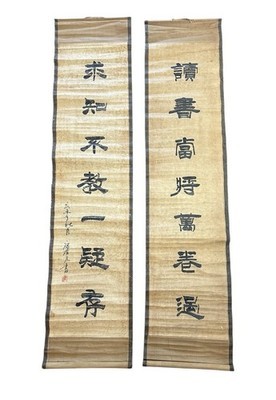 讀書當將萬卷過
求知不教一疑存